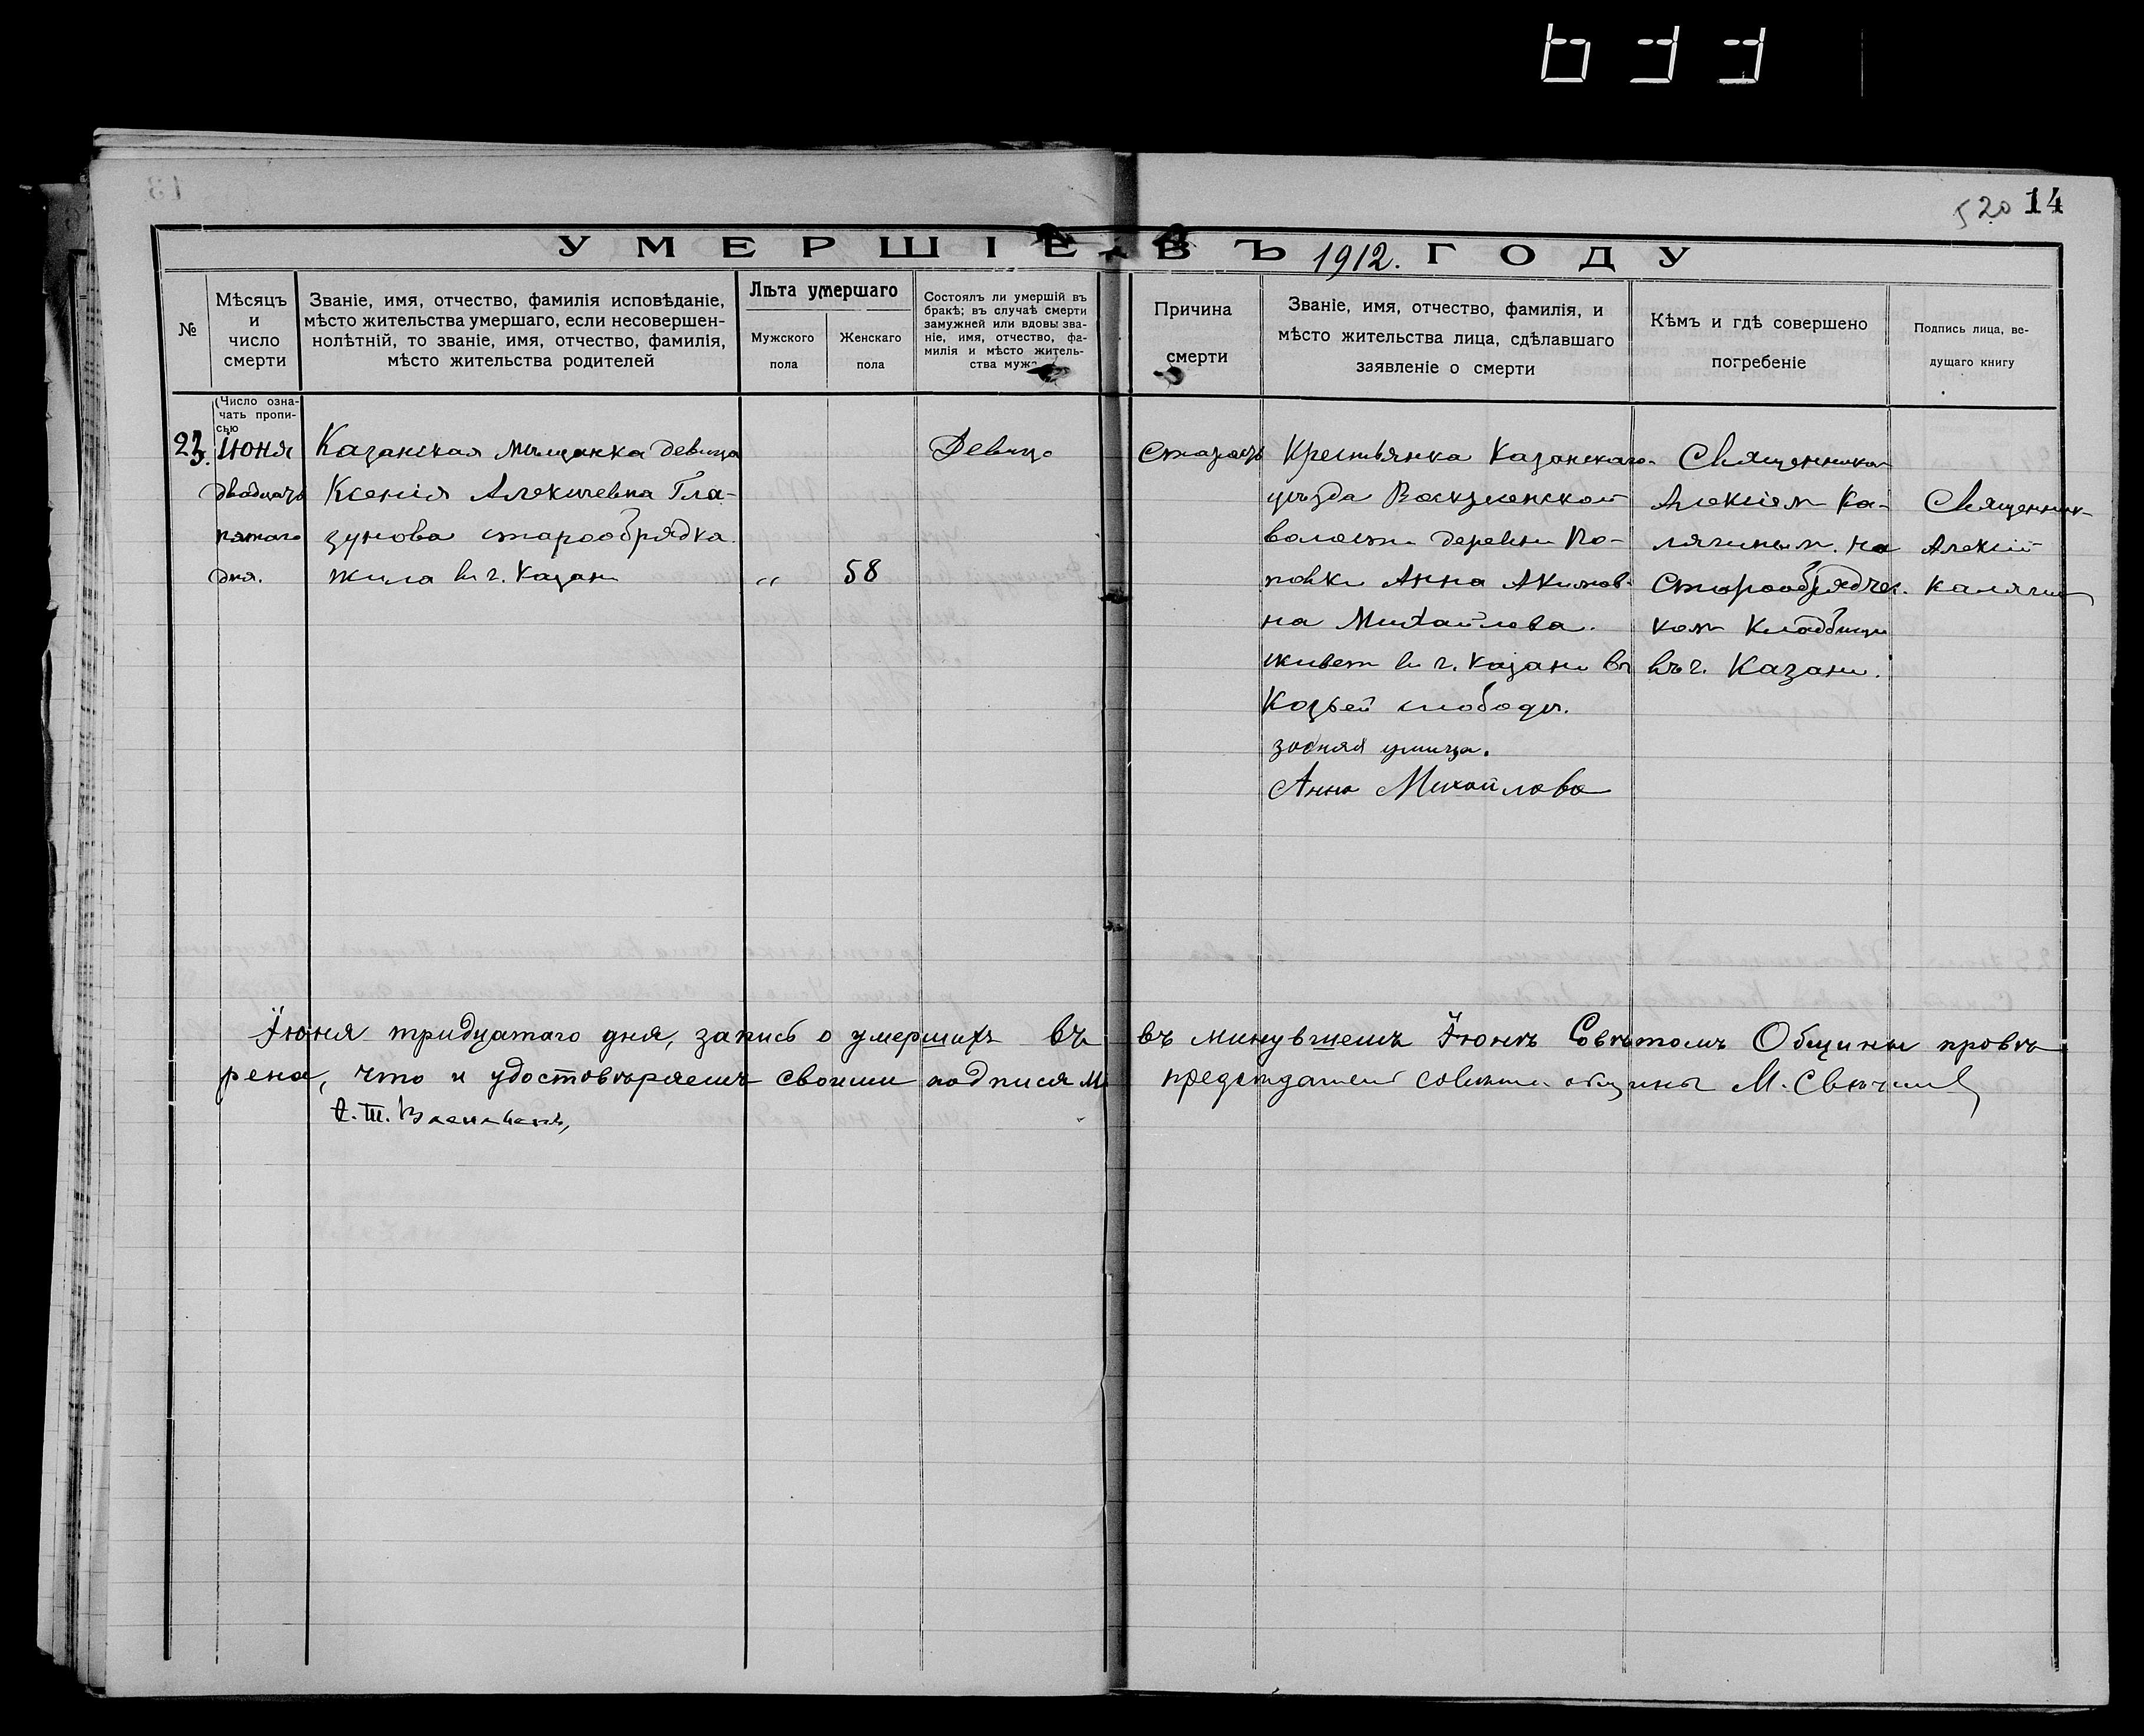 13
520 14
УМЕРШІЕ ВЪ 1912. ГОДУ
№
Мѣсяцъ
и
число
смерти
Званіе, имя, отчество, фамилія исповѣданіе,
мѣсто жительства умершаго, если несовершен-
нолѣтній, то званіе, имя, отчество, фамилія,
мѣсто жительства родителей
Лѣта умершаго
Мужского
пола
Женскаго
пола
Состоялъ ли умершій въ
бракѣ; въ случаѣ смерти
замужней или вдовы зва-
ніе, имя, отчество, фа-
милія и мѣсто житель-
ства мужа
Причина
смерти
Званіе, имя, отчество, фамилія, и
мѣсто жительства лица, сдѣлавшаго
заявленіе о смерти
Кѣмъ и гдѣ совершено
погребеніе
Подпись лица, ве-
дущаго книгу
(Число озна-
чать пропи-
сью
Іюня
двадцать
пятаго
дня.
Казанская мѣщанка девица
Ксенія Алексеевна Гла-
зунова старообрядка.
жила в г. Казани
„ 58
Девица
Старость
Крестьянка Казанскаго
уѣзда Воскресенской
волости деревни По-
повки Анна Акимов-
на Михайлова.
живет в г. Казани въ
Козьей слободы.
улица.
Анна Михайлова
Священником
Алексіем Ка-
лягиным. на
Старообрядчес.
ком Кладбище
въ г. Казани.
Священник
Алексій
Калягин
Іюня тридцатаго дня, запись о умершихъ въ въ минувшемъ Іюнѣ Совѣтомъ Общины провѣ
рена, что и удостовѣряемъ своими подписями председатель совета общины М. Свѣчин